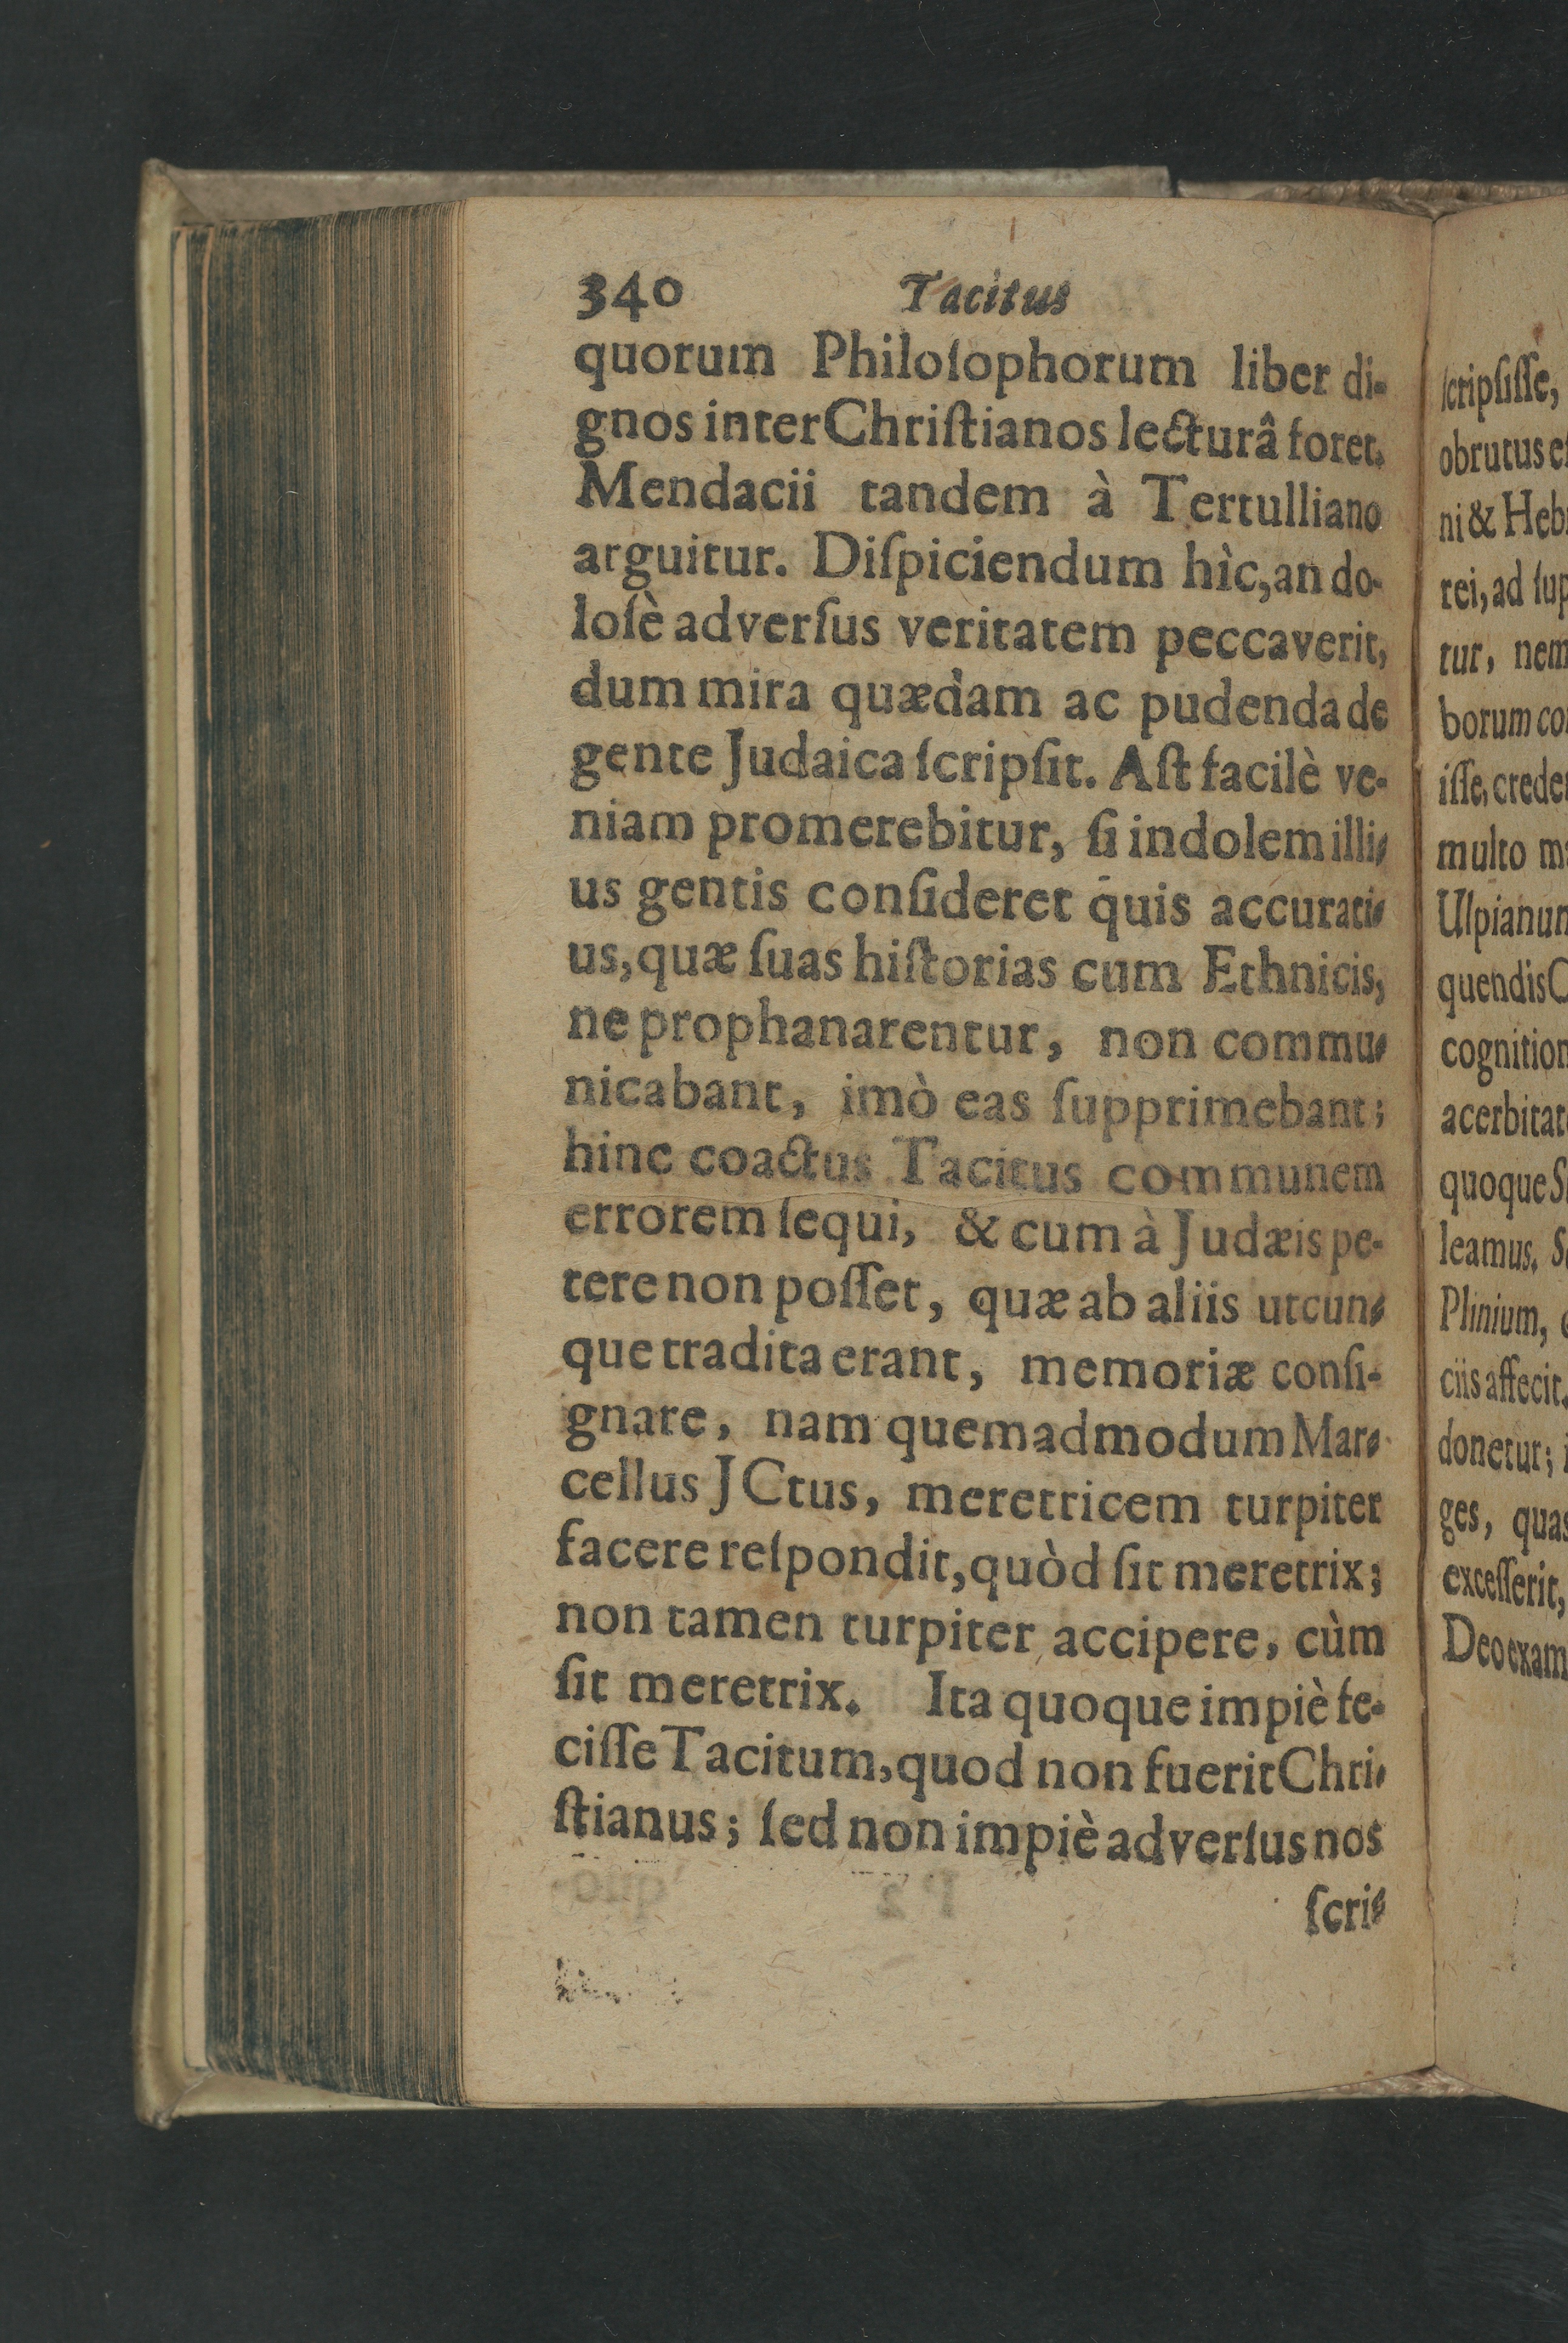 340 Tacitus
quorum Philoſophorum liber di-
gnos inter Chriſtianos lecturâ foret.
Mendacii tandem à Tertulliano
arguitur. Diſpiciendum hìc, an do-
loſè adverſus veritatem peccaverit,
dum mira quædam ac pudenda de
gente Judaica ſcripſit. Aſt facilè ve-
niam promerebitur, ſi indolem illi-
us gentis conſideret quis accurati-
us, quæ ſuas hiſtorias cum Ethnicis,
ne prophanarentur, non commu-
nicabant, imò eas ſupprimebant;
hinc coactus Tacitus communem
errorem ſequi, & cum à Judæis pe-
tere non poſſet, quæ ab aliis utcun-
que tradita erant, memoriæ conſi-
gnare, nam quemadmodum Mar-
cellus JCtus, meretricem turpiter
facere reſpondit, quòd ſit meretrix;
non tamen turpiter accipere, cùm
ſit meretrix. Ita quoque impiè fe-
ciſſe Tacitum, quod non fuerit Chri-
ſtianus; ſed non impiè adverſus nos
ſcri-
ſcripſiſſe,
obrutus
ni & Heb
rei, ad ſup
tur, nem
borum co
iſſe, crede
multo m
Ulpianum
quendis C
cognition
acerbitat
quoque S
leamus. S
Plinium,
ciis affecit.
donetur; i
ges, quas
exceſſerit,
Deo exam